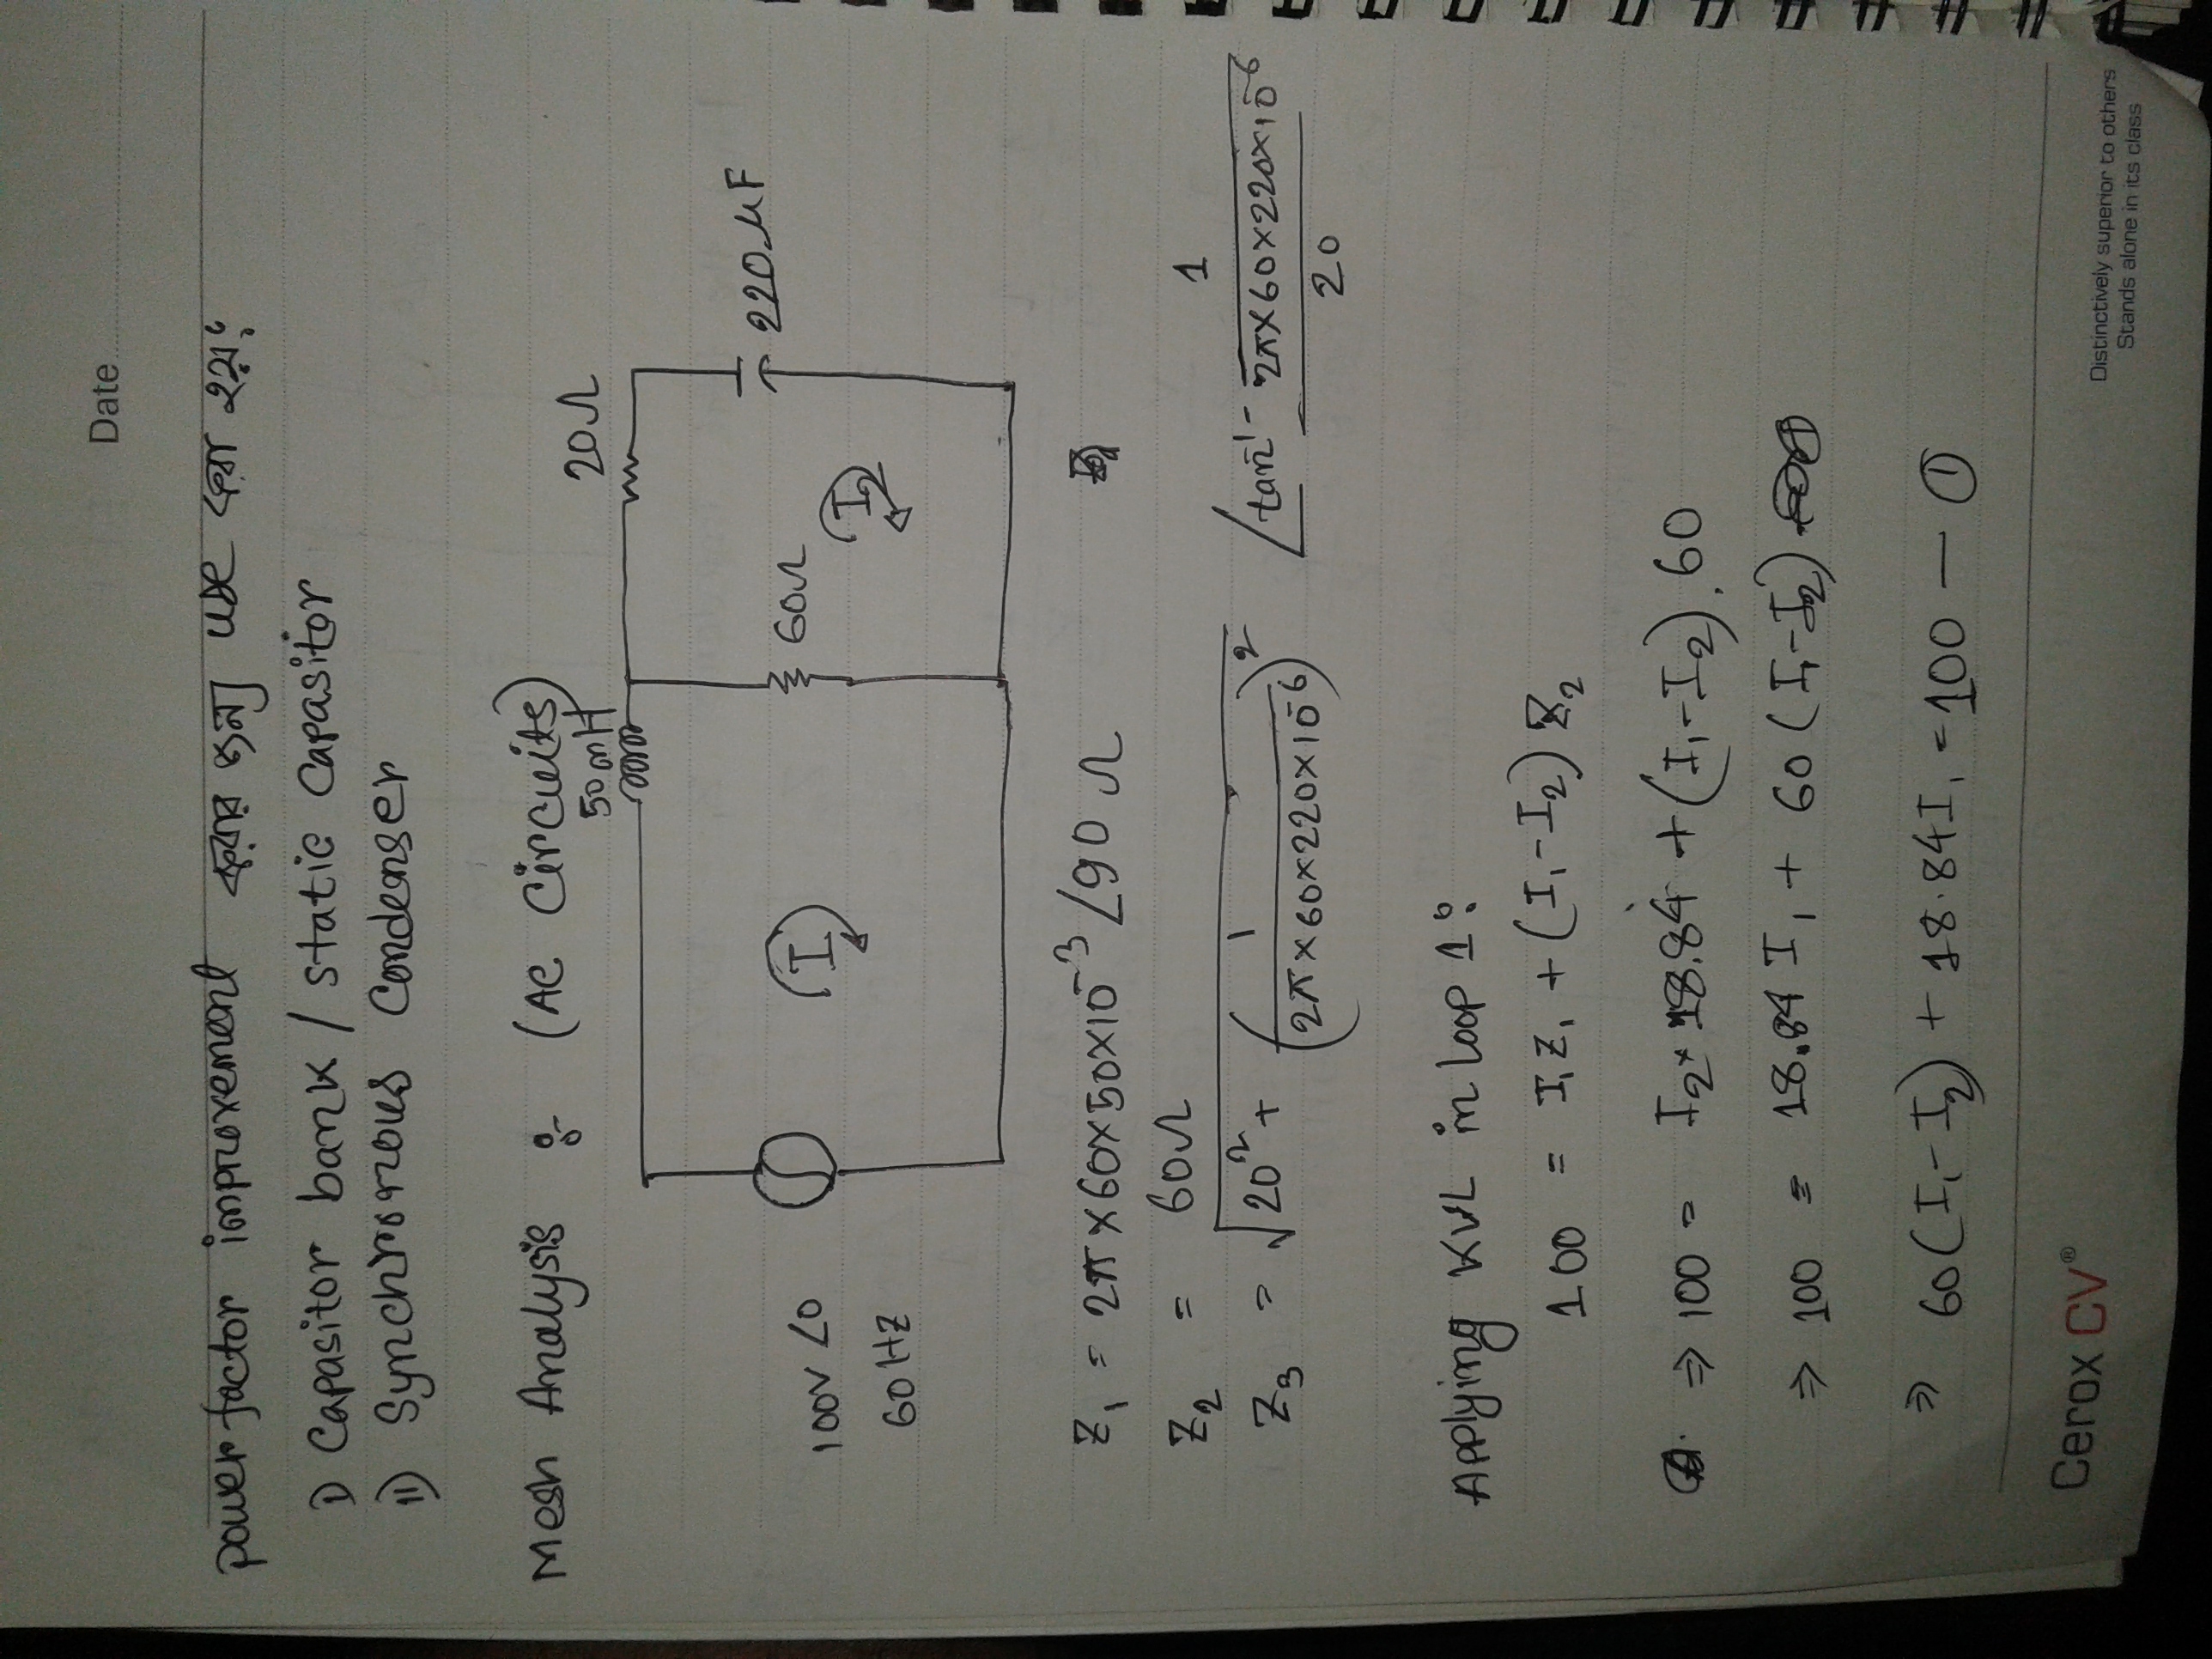 Date
power factor improvement করার জন্য use করা হয়:
i) Capasitor bank / static Capasitor
ii) Synchronous Condenser
Mesh Analysis :- (AC Circuits)
50mH
20Ω
100V ∠0
60 HZ
I
60Ω
I₂
220μF
Z₁ = 2π×60×50×10⁻³ ∠90 Ω
Z₂ = 60Ω
Z₃ = √(20² + (1/(2π×60×220×10⁻⁶))²) ∠tan⁻¹ - (1/(2π×60×220×10⁻⁶))/20
Applying KVL in loop 1:
100 = I₁Z₁ + (I₁-I₂) Z₂
⇒ 100 = I₂× 18.84 + (I₁-I₂).60
⇒ 100 = 18.84 I₁ + 60 (I₁-I₂)
⇒ 60(I₁-I₂) + 18.84I₁ = 100 — ①
Cerox CV®
Distinctively superior to others
Stands alone in its class